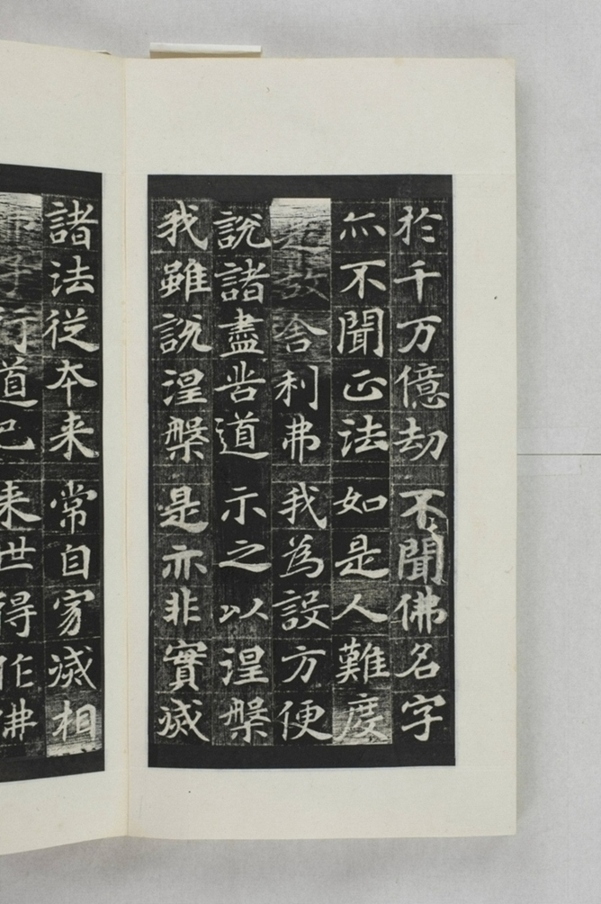 於千万億劫不聞佛名字
亦不聞正法如是人難度
是故舍利弗我為設方便
說諸盡苦道示之以涅槃
我雖說涅槃是亦非實滅
諸法從本来常自寂滅相
子行道已来世得作佛